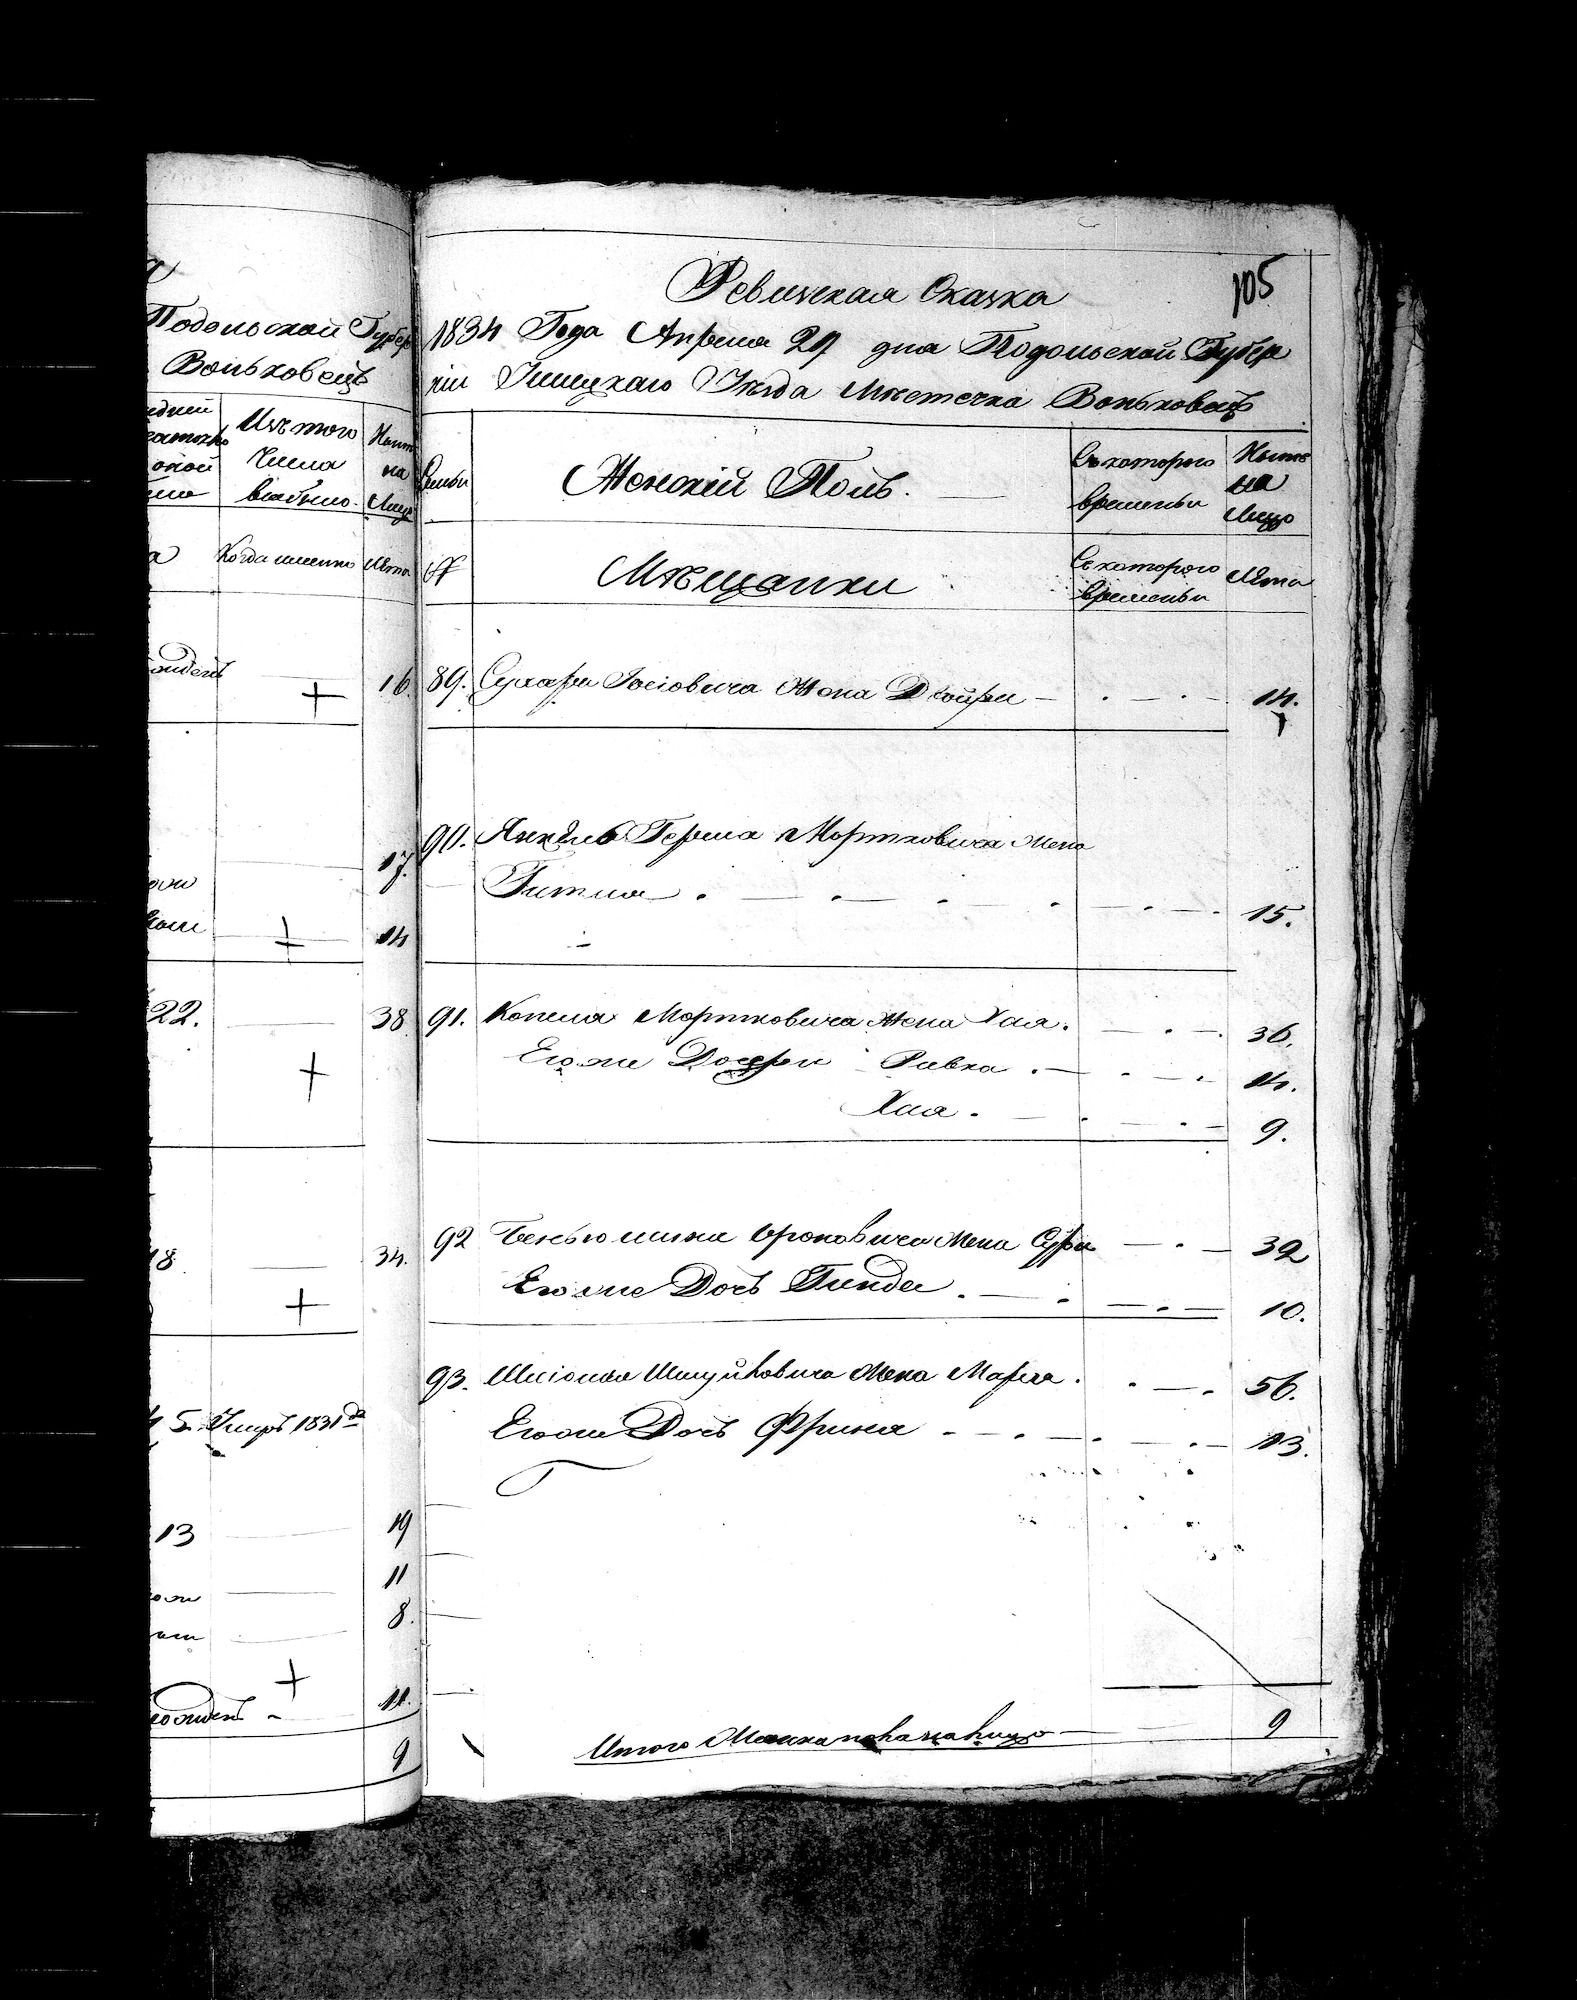 Подольской Губер
Воньковецъ
Изъ того
числа
выбыло.
Нынѣ
на
лицо
Когда именно
Лѣта
16.
17.
14
22.
38
18
34.
5. Умеръ 1831го
13
19
11
8.
11.
9
105
Ревизская Сказка
1834 Года Апреля 29 дня Подольской Губер
ніи Ушицкаго Уѣзда Мѣстечка Воньковецъ
Семьи
Женскій Полъ.
Съ котораго
времени
Нынѣ
на
лицо
№
Мѣщанки
Съ котораго
времени
Лѣта
89. Сухера Іосіовича Жена Двойра 14.
90. Янкель Герша Мортковича Жена
Гитля 15.
91. Копеля Мортковича Жена Хая. 36.
Его же Дочери Ривка 14.
Хая. 9.
92 Беньюмина Ароновича Жена Сура 32
Его же Дочь Гинда 10.
93. Жена Марья. 56.
Его же Дочь Фрима 13.
Итого Женска пола на лицо 9